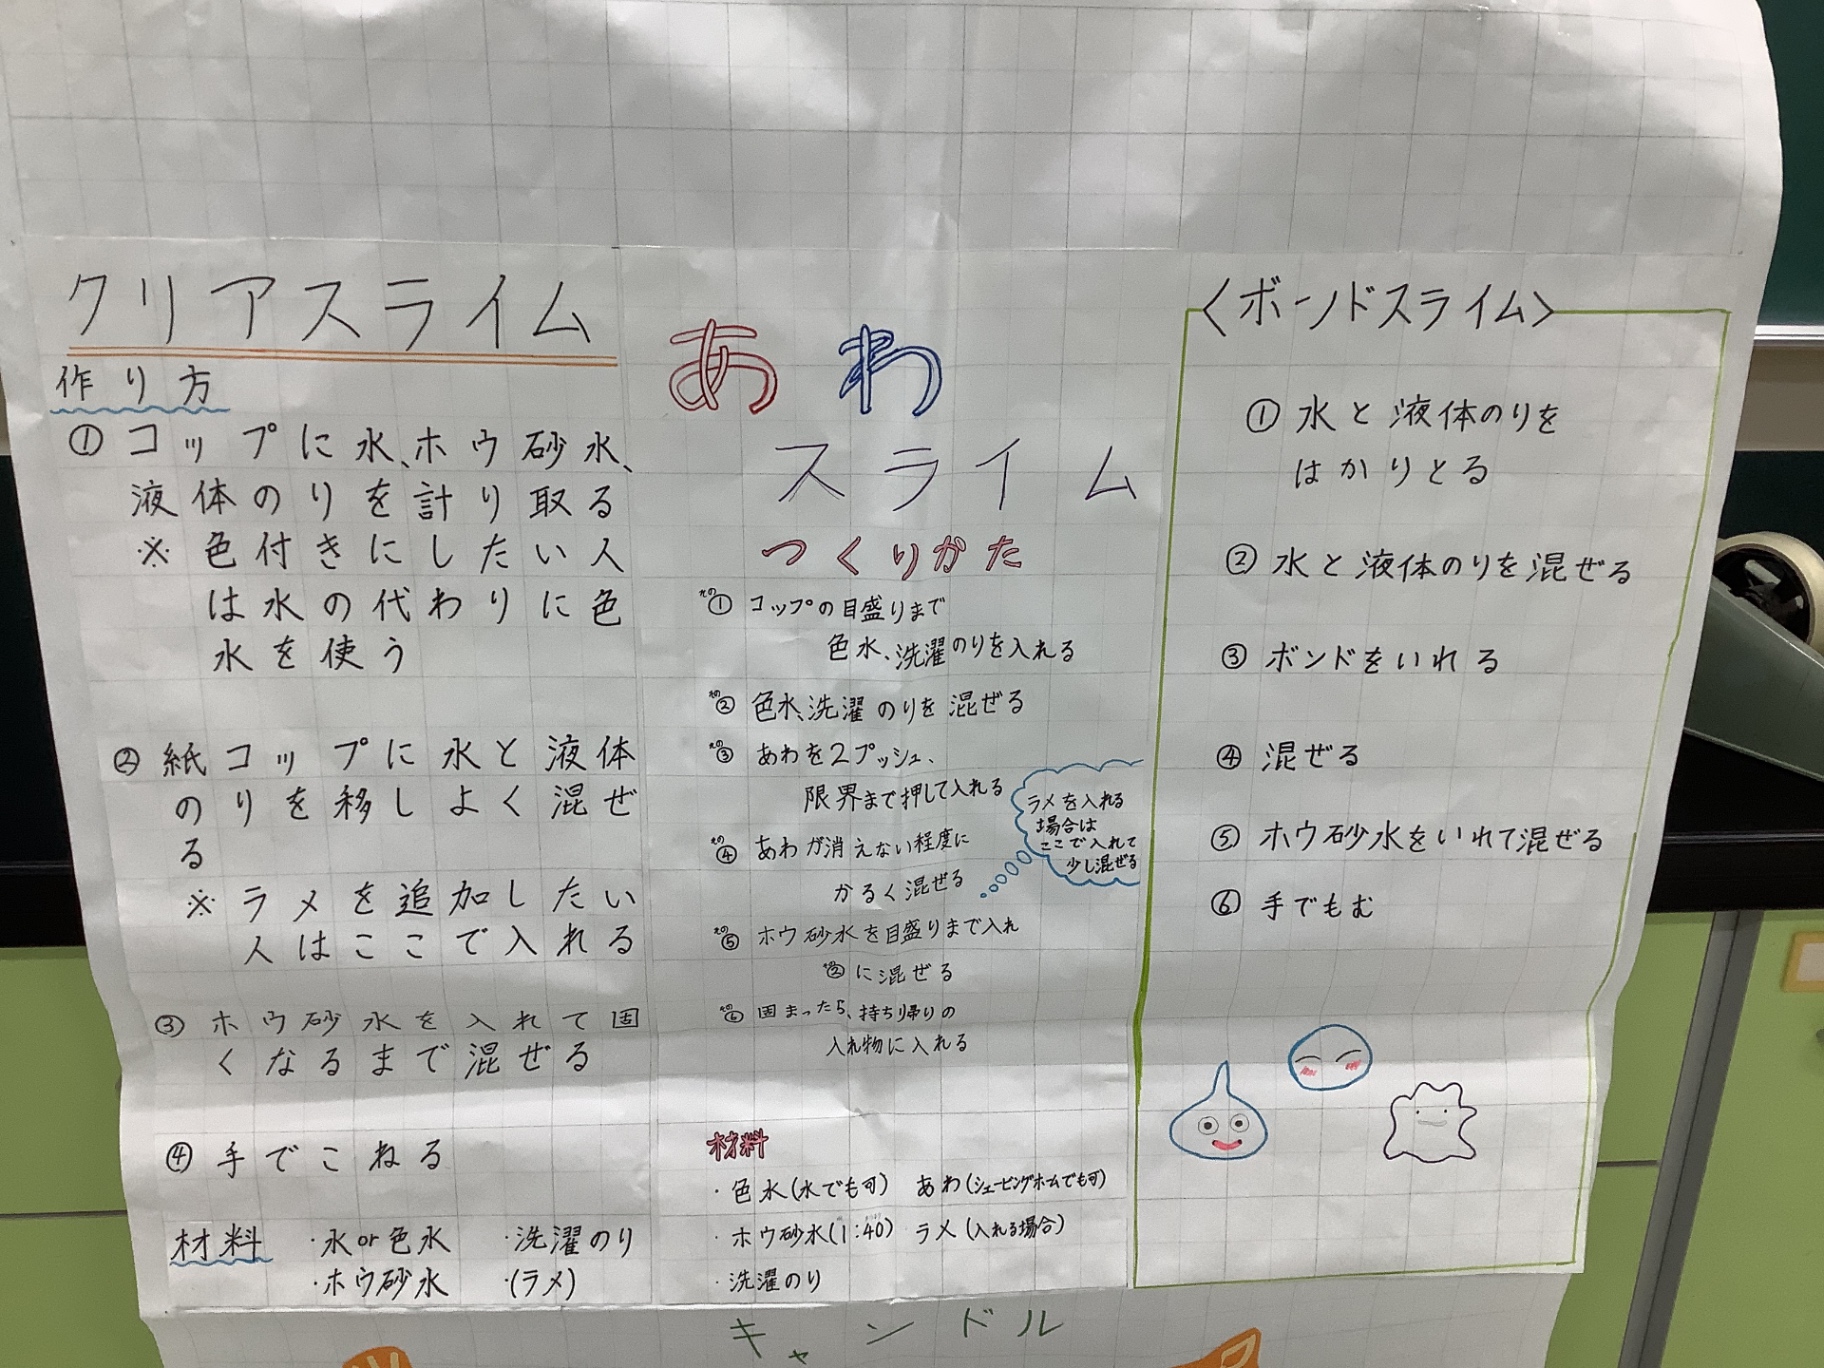 クリアスライム
作り方
① コップに水、ホウ砂水、
液体のりを計り取る
※ 色付きにしたい人
は水の代わりに色
水を使う
② 紙コップに水と液体
のりを移しよく混ぜ
る
※ ラメを追加したい
人はここで入れる
③ ホウ砂水を入れて固
くなるまで混ぜる
④ 手でこねる
材料 ・水or色水 ・洗濯のり
・ホウ砂水 ・(ラメ)
あわ
スライム
つくりかた
その① コップの目盛りまで
色水、洗濯のりを入れる
その② 色水、洗濯のりを混ぜる
その③ あわを2プッシュ、
限界まで押して入れる
その④ あわが消えない程度に
かるく混ぜる
ラメを入れる
場合は
ここで入れて
少し混ぜる
その⑤ ホウ砂水を目盛りまで入れ
に混ぜる
その⑥ 固まったら、持ち帰りの
入れ物に入れる
材料
・色水(水でも可) あわ(シェービングホームでも可)
・ホウ砂水(1:40) ラメ(入れる場合)
・洗濯のり
〈ボンドスライム〉
① 水と液体のりを
はかりとる
② 水と液体のりを混ぜる
③ ボンドをいれる
④ 混ぜる
⑤ ホウ砂水をいれて混ぜる
⑥ 手でもむ
キャンドル